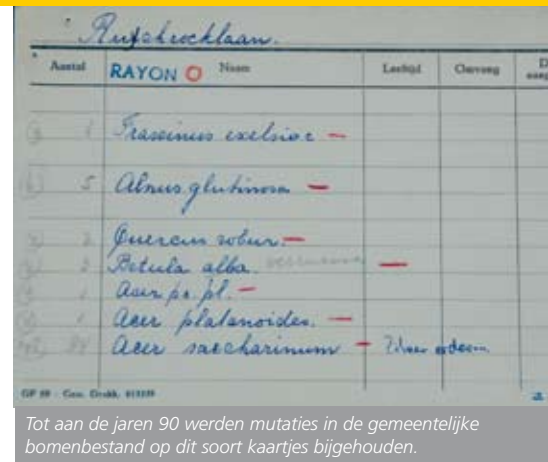 Aantal RAYON O Naam Leeftijd Omvang
1 Fraxinus exelsior —
5 Alnus glutinosa —
2 Quercus robur —
2 Betula alba. —
1 Acer ps. pl. —
1 Acer platanoides. —
Acer saccharinum — Zilver esdoorn.
GP 59 - Gem. Drukk.
Tot aan de jaren 90 werden mutaties in de gemeentelijke
bomenbestand op dit soort kaartjes bijgehouden.